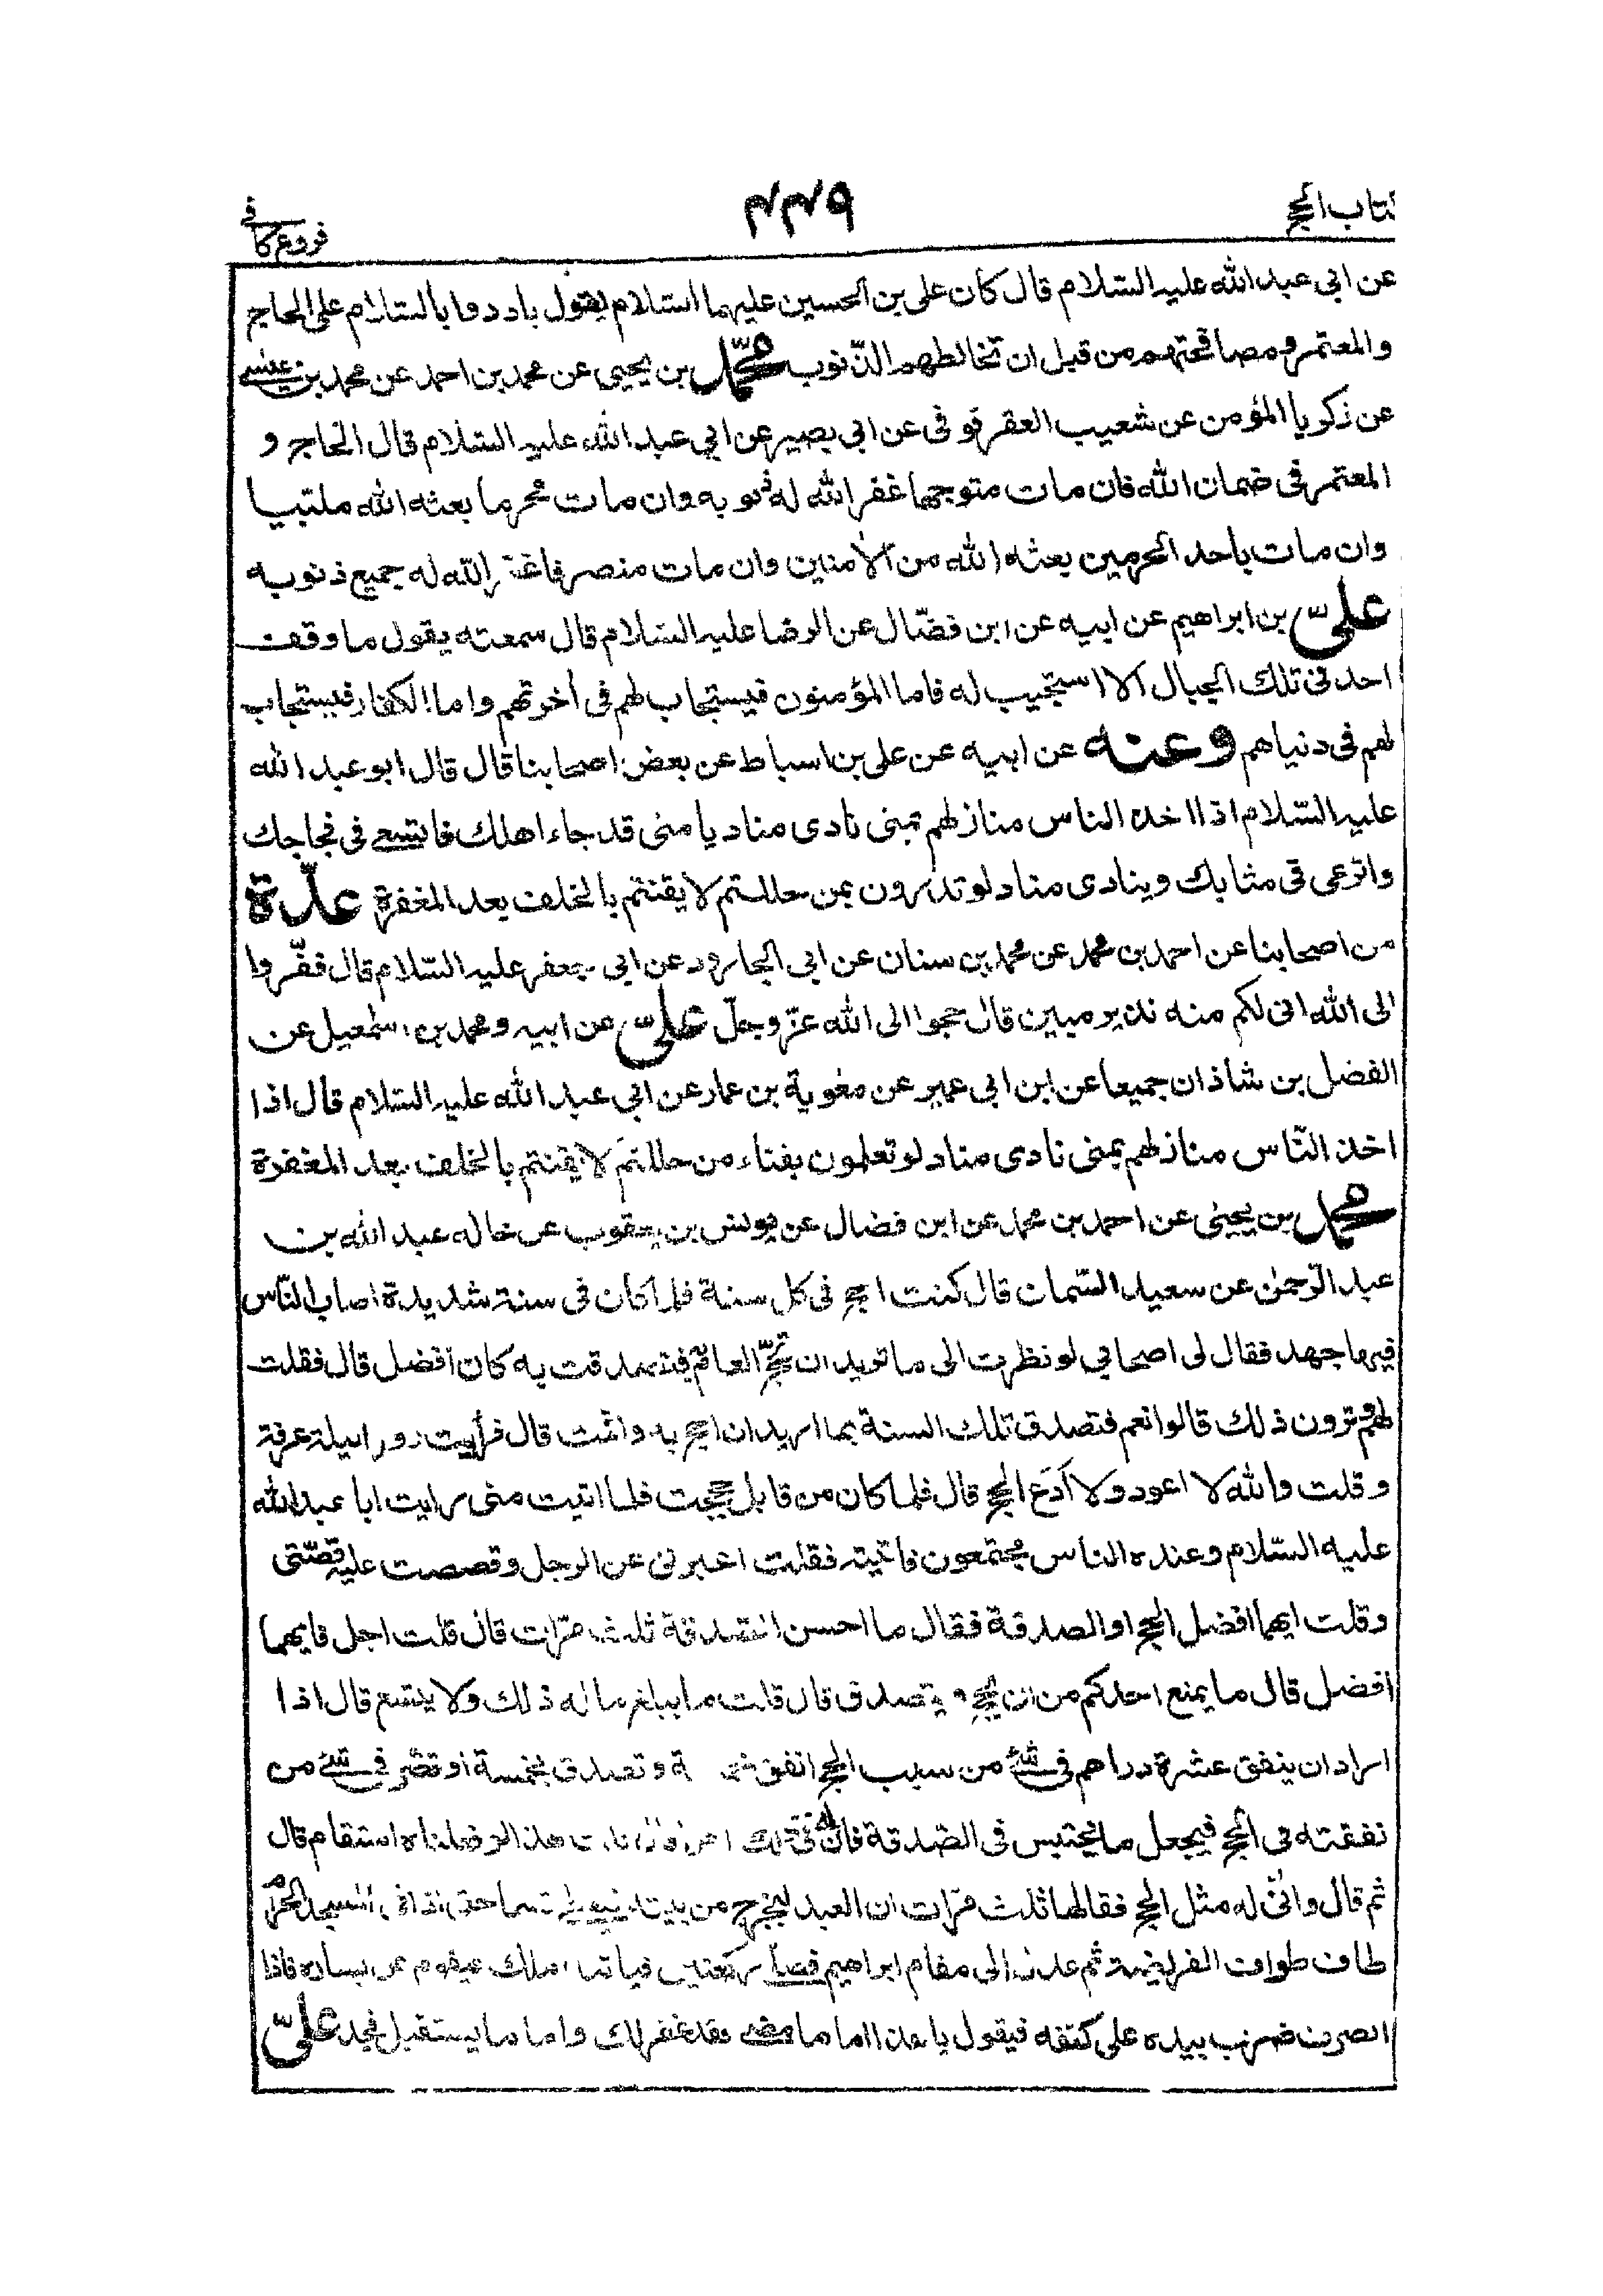 كتاب الحج
۲۲۹
فروع كافي
عن ابي عبد الله عليه السلام قال كان على بن الحسين عليهما السلام يقول بادروا بالسلام على الحاج
والمعتمر ومصافحتهم من قبل ان تخالطهم الذنوب محمد بن يحيى عن محمد بن احمد عن محمد بن عيسى
عن زكريا المؤمن عن شعيب العقرقوفى عن ابي بصير عن ابي عبد الله عليه السلام قال الحاج و
المعتمر فى ضمان الله فان مات متوجها غفر الله له ذنوبه وان مات محرما بعثه الله ملبيا
وان مات باحد الحرمين بعثه الله من الآمنين وان مات منصرفا غفر الله له جميع ذنوبه
علىّ بن ابراهيم عن ابيه عن ابن فضّال عن الرضا عليه السلام قال سمعته يقول ما وقف
احد فى تلك الجبال الا استجيب له فاما المؤمنون فيستجاب لهم فى آخرتهم واما الكفار فيستجاب
لهم فى دنياهم وعنه عن ابيه عن على بن اسباط عن بعض اصحابنا قال قال ابو عبد الله
عليه السّلام اذا اخذ الناس منازلهم بمنى نادى مناد يا منى قد جاء اهلك فاتسعى فى فجاجك
واترعى فى مثابك وينادى مناد لو تدرون بمن حللتم لايقنتم بالخلف بعد المغفرة عدّة
من اصحابنا عن احمد بن محمد عن محمد بن سنان عن ابى الجارود عن ابى جعفر عليه السّلام قال ففرّوا
الى الله انى لكم منه نذير مبين قال حجوا الى الله عزّ وجلّ علىّ عن ابيه ومحمد بن اسمعيل عن
الفضل بن شاذان جميعا عن ابن ابى عمير عن معوية بن عمار عن ابي عبد الله عليه السّلام قال اذا
اخذ النّاس منازلهم بمنى نادى مناد لو تعلمون بفناء من حللتم لايقنتم بالخلف بعد المغفرة
محمد بن يحيى عن احمد بن محمد عن ابن فضال عن يونس بن يعقوب عن خاله عبد الله بن
عبد الرّحمن عن سعيد السّمان قال كنت احج فى كل سنة فلما كان فى سنة شديدة اصاب النّاس
فيها جهد فقال لى اصحابي لو نظرت الى ما تريد ان تحجّ العام به فتصدقت به كان افضل قال فقلت
لهم وترون ذلك قالوا نعم فتصدق تلك السنة بما اريد ان احج به واقمت قال فرأيت رويا ليلة عرفة
وقلت والله لا اعود ولا أدَع الحج قال فلما كان من قابل حججت فلما اتيت منى رايت ابا عبد الله
عليه السّلام وعنده الناس مجتمعون فاتيته فقلت اخبرنى عن الرجل وقصصت عليه قصّتى
وقلت ايهما افضل الحج او الصدقة فقال ما احسن الصدقة ثلث مرّات قال قلت اجل فايهما
افضل قال ما يمنع احدكم من ان يحج ويتصدق قال قلت ما يبلغ ماله ذلك ولا يتسع قال اذا
اراد ان ينفق عشرة دراهم فى شئ من سبب الحج انفق خمسة وتصدق بخمسة او قصّر فى شئ من
نفقته فى الحج فيجعل ما يحتبس فى الصّدقة فان له فى ذلك اجرا قال قلت هذا لو فعلناه استقام قال
ثم قال وانّى له مثل الحج فقالها ثلث مرّات ان العبد ليخرج من بيته فيعطى قسما حتى اذا اتى المسجد الحرام
طاف طواف الفريضة ثم عدل الى مقام ابراهيم فصلى ركعتين فياتيه ملك فيقوم عن يساره فاذا
انصرف ضرب بيده على كتفه فيقول يا هذا اما ما مضى فقد غفر لك واما ما يستقبل فجد علىّ